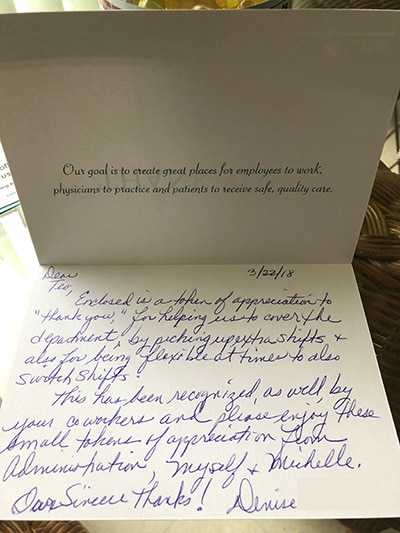 Our goal is to create great places for employees to work,
physicians to practice and patients to receive safe, quality care.
Dear 3/22/18
Teo,
Enclosed is a token of appreciation to
"thank you," for helping us to cover the
department, by picking up extra shifts +
also for being flexible at times to also
switch shifts.
This has been recognized, as well, by
your coworkers and please enjoy these
small tokens of appreciation from
Administration, myself + Michelle.
Our Sincere Thanks! Denise